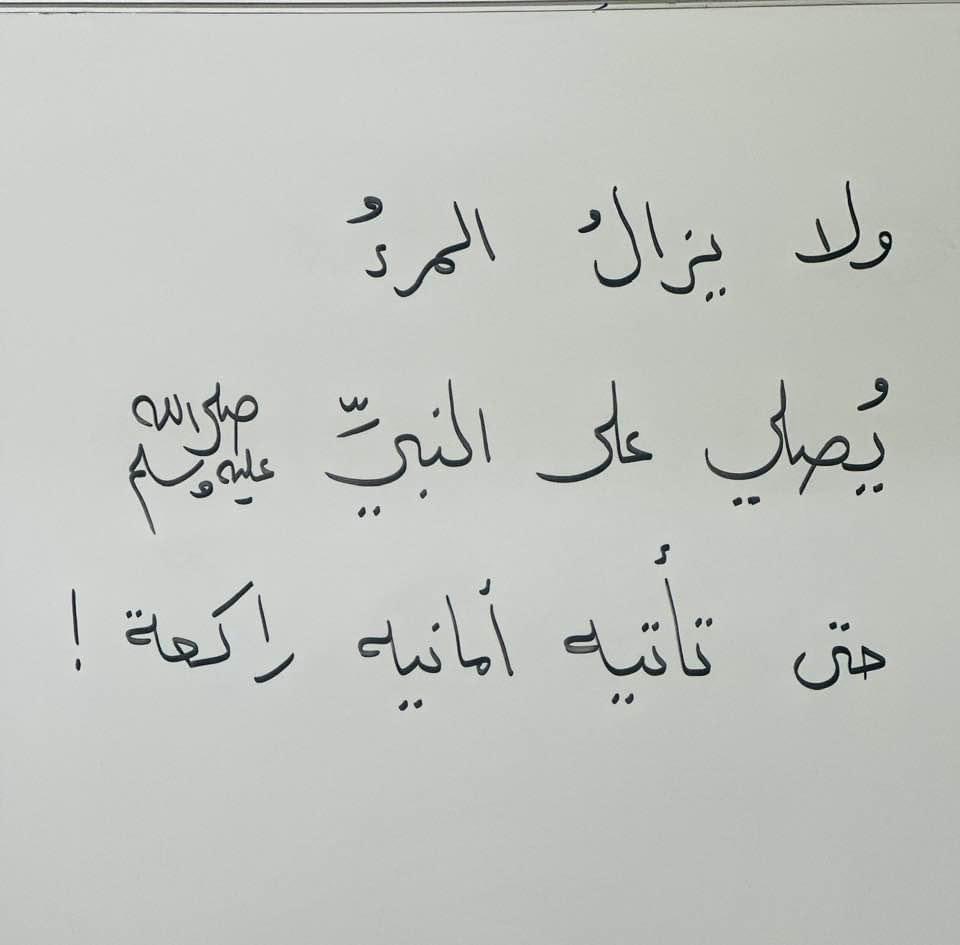 ولا يزالُ المرءُ
يُصلي على النبيّ صلى الله عليه وسلم
حتى تأتيه أمانيه راكعة !